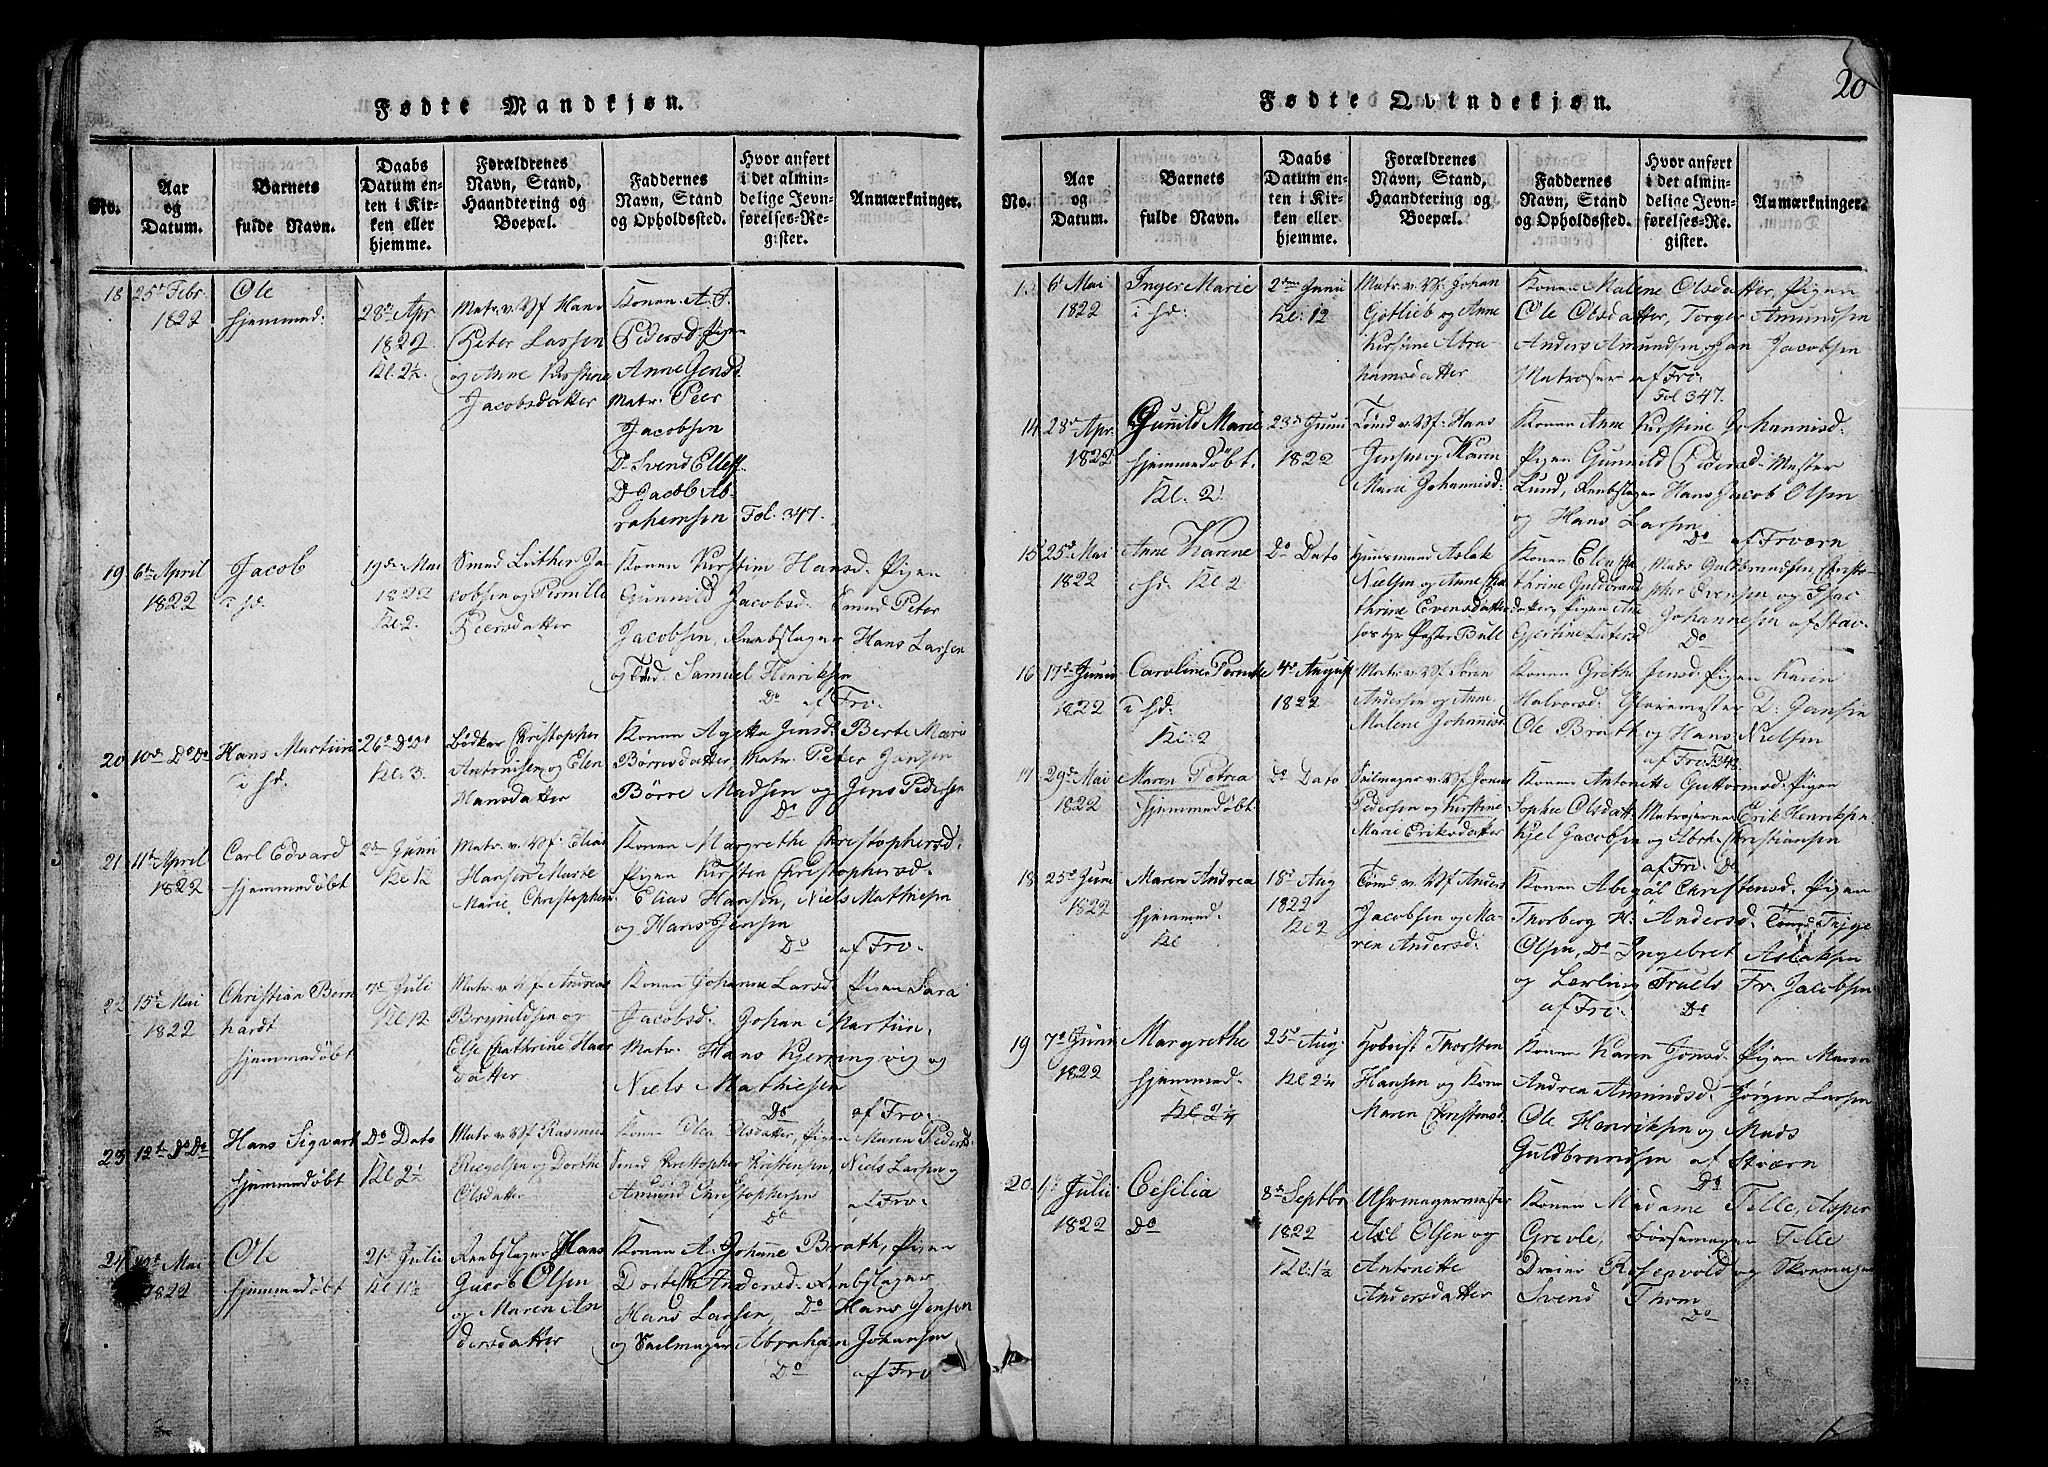 20
Fødte Mandkjøn.
No.
Aar
og
Datum.
Barnets
fulde Navn.
Daabs
Datum en-
ten i Kir-
ken eller
hjemme.
Forældrenes
Navn, Stand,
Haandtering og
Boepæl.
Faddernes
Navn, Stand
og Opholdssted.
Hvor anført
i det almin-
delige Jevn-
førelses-Re-
gister.
Anmærkninger.
18
25d Febr.
1822
Ole
hjemmed:
28de Apr
1822
Kl. 2½
Matr. v. Vf Hans
Peter Larsen
og Anne Kirstine
Jacobsdatter
Konen A. J.
Pedersd. Pigen
Anne Jensd.
Matr. Peer
Jacobsen
Do Svend Ellefs.
Do Jacob Ab-
rahamsen
Fol. 347.
19
6te April
1822
Jacob
i hd.
19de Mai
1822
Kl. 2.
Smed Luther Ja-
cobsen og Pernille
Peersdatter
Konen Kirstine Hansd. Pigen
Gunnild Jacobsd. Smed Peter
Jacobsen, Rebslager Hans Larsen
og Tømd. Samuel Henriksen
Do af Fro.
20
10de Do Do
Hans Martin
i hd.
26d Do Do
Kl. 3.
Bødker Christopher
Antonisen og Elen
Hansdatter
Konen Agethe Jensd. Berte Marie
Børresdatter, Matr. Peter Jansen
Børre Madsen og Jens Pedersen
Do
21.
11te April
1822
Carl Edvard
hjemmedøbt
2den Juni
Kl 12
Matr. v. Vf. Elias
Hansen Marte
Marie Christophers.
Konen Margrethe Christophersd.
Pigen Kirsten Christophersd.
Elias Hansen, Niels Mathiesen
og Hans Jensen
Do af Fro.
22
15d Mai
1822
Christian Bern
hardt
hjemmedøbt
7de Juli
Kl. 12
Matr. v. Vf. Andreas
Brynildsen og
Else Cathrine Hans
datter
Konen Johanne Larsd. Pigen Sara
Jacobsd. Johan Martin.
Matr. Hans Kjerringvig og
Niels Mathiesen
Do af Fro.
23
12te Do Do
Hans Sigvart
hjemmedøbt
Do Dato
Kl. 2½
Matr v. Vf Rasmus
og Dorthe
Olsdatter
Konen Olea Olsdatter, Pigen Maren Pedersd.
Smed Christopher Kristensen, Niels Larsen og
Amund Christophersen
Do af Fro.
24
Mai
1822
Ole
hjemmedøbt
21d Julii
Kl. 1½
Rebslager Hans
Jacob Olsen
og Maren An
dersdatter
Konen A. Johanne Brath, Pigen
Dorthe Andersd. Rebslager
Hans Larsen, Do Hans Jensen
og Seilmager Abraham Johansen
Do af Fro
Fødte Qvindekjøn.
No.
Aar
og
Datum.
Barnets
fulde Navn.
Daabs
Datum en-
ten i Kir-
ken eller
hjemme.
Forældrenes
Navn, Stand,
Haandtering og
Boepæl.
Faddernes
Navn, Stand
og Opholdssted.
Hvor anført
i det almin-
delige Jevn-
førelses-Re-
gister.
Anmærkninger.
13
6d Mai
1822
Inger Marie
i hd:
2den Junii
Kl. 12
Matr. v. Vf. Johan
Gotlieb og Anne
Kirstine Abra-
hamsdatter
Konen Malene Olsdatter, Pigen
Ole Olsdatter, Torger Amundsen
Anders Amundsen og Jan Jacobsen
Matroser af Fro.
Fol 347.
14
28d Apr.
1822
Gunild Marie
hjemmedøbt.
Kl. 2
23d Junii
1822
Tømd v. Vf. Hans
Jensen og Karen
Marie Johannisd.
Konen Anne Kirstine Johannisd.
Pigen Gunnild Pedersd. Mester
Lund, Rebslager Hans Jacob Olsen
og Hans Larsen
Do af Fværn
15
25d Mai
1822
Anne Karene
hd. Kl 2
Do Dato
Huusmand Aslak
Nielsen og Anne Ca
thrine Evensdatter
hos hr Pastor Bull
Konen Elen Ca
thrine Guldbrands
datter, Pigen
Gjertine Lutersd
Mads Guldbrandsen, Christo-
pher Evensen og Isac
Johannesen af Stav-
Do
16
17d Junii
1822
Caroline Pernille
i hd.
Kl. 2
4d August
1822
Matr. v. Vf Søren
Andersen og Anne
Malene Johanisd
Konen Grethe Jensd. Pigen Karen
Halvorsd. Glarmester D. Jansen
Ole Brath og Hans Nielsen
af Fro. F. 348
17
29d Mai
1822
Maren Petrea
hjemmedøbt
Do Dato
Seilmager v. Vf Jens
Pedersen og Kirstine
Marie Eriksdatter
Konen Antonette Guttormsd. Pigen
Sophie Olsdatt. Matroserne Erik Henriksen
Kjel Jacobsen og Abrh. Christiansen
af Fro. Do
18
25d Juni
1822
Maren Andrea
hjemmed.
Kl
18d Aug
1822
Kl 2
Tømd v. Vf Anders
Jacobsen og Ma-
ren Andersd.
Konen Abigæl Christensd. Pigen
Thorberg H. Andersd. Tømd Trygge
Olsen, Do Ingebret Aslaksen
og Lærling Truels Fr. Jacobsen
af Fro. Do
19
7d Juni
1822
Margrethe
hjemmed.
Kl 2½
25d Aug.
Kl 2½
Hoboist Thorsten
Hansen og Kone
Maren Christensd.
Konen Karen Jonsd. Pigen Maren
Andrea Amundsd. Jørgen Larsen
Ole Henriksen og Mads
Guldbrandsen af Stværn
Do
20.
1te Julii
1822
Cesilia
Do
8d Septbr
1822
Kl. 1½
Uhrmagermester
Axl Olsen og
Antonette
Andersdatter
Konen Madame Telle, Asper
Grevle, Børsemager Telle
Dreier Rosenvold og Skomager
Svend Thom
Do